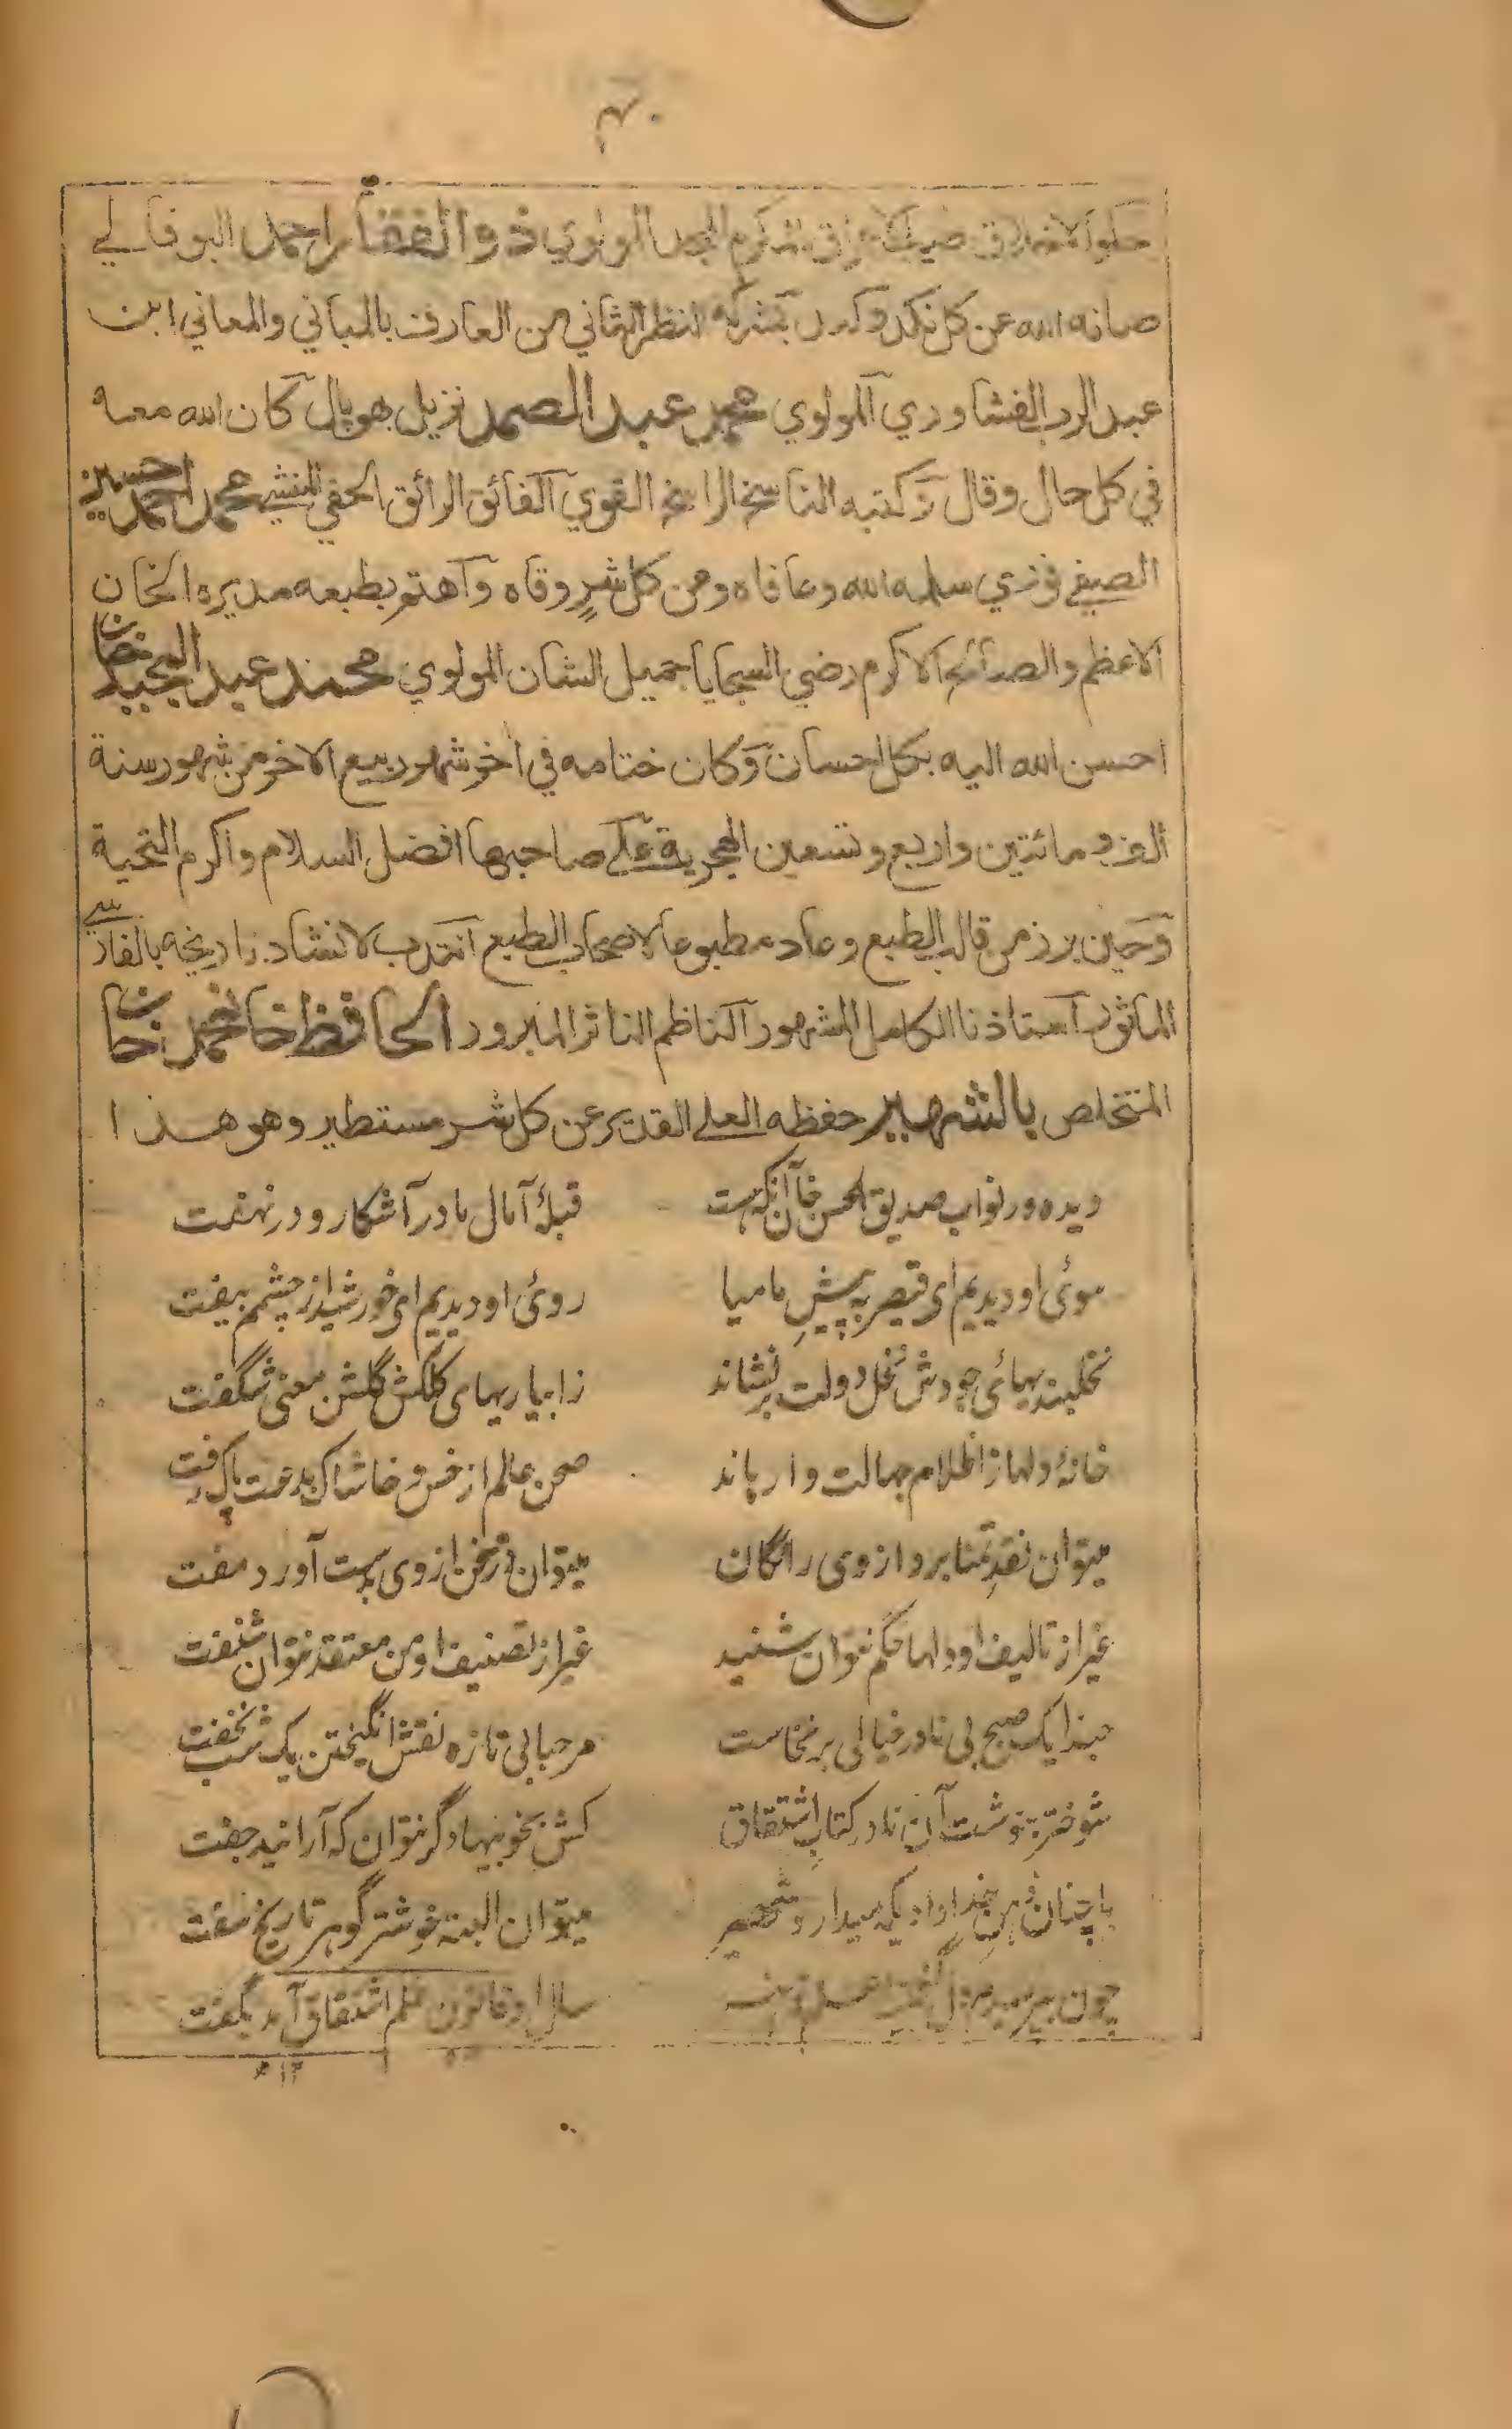 ٤٠
حلو الاخلاق المولوي ذو الفقار احمد البوفالي
صانه الله عن كل نكد وكمد بشركة النظر الثاني من العارف بالمباني والمعاني ابن
عبد الرب الفشاوري المولوي محمد عبد الصمد نزيل بهوپال كان الله معه
في كل حال وقال وكتبه الناسخ الراسخ القوي الفائق الرائق الحفي المنشي محمد احمد حسين
الصفي فوري سلمه الله وعافاه ومن كل شرٍ وقاه واهتم بطبعه مديره الخان
الاعظم والصدر الاكرم رضي السجايا جميل الشان المولوي محمد عبد المجيد خان
احسن الله اليه بكل احسان وكان ختامه في اخر شهر ربيع الاخر من شهور سنة
الف ومائتين واربع وتسعين الهجرية على صاحبها افضل السلام واكرم التحية
وحين برز من قالب الطبع وعاد مطبوعا لاصحاب الطبع انتدب لانشاد تاريخه بالفارسي
الماثور استاذنا الكامل المشهور الناظم الناثر المبرور الحافظ خان محمد خان
المتخلص بالشهير حفظه العلي القدير عن كل شر مستطير وهو هذا
ديده ور نواب صديق الحسن خان آنكه هست قبلۀ آمال ما در آشكار و در نهفت
سوئ او ديديم اى قيصر به پيشِ ما ميا روئ او ديديم اى خورشيد از چشمم بيفت
نخلبنديهائ جودش نخل دولت بر نشاند زابياريهاى كلكش گلشن معنى شگفت
خانۀ دلها ز اظلام جهالت وارهاند صحن عالم از خس و خاشاك بدعت پاك رفت
ميتوان نقدِ تمنا برد از وى رائگان ميتوان دُرّ سخن از وى بدست آورد مفت
غير از تاليف او دلها حكم نتوان شنيد غير از تصنيف او من معتقد نتوان شنفت
حبذا يك صبح بى نادر خيالى بر نخاست مرحبا بى تازه نقش انگيختن يك شب نخفت
شوخ‌تر بنوشت آن نادر كتابِ اشتقاق كش بخوبيها دگر نتوان كه آرائيد جفت
با چنان ذهنِ خداداديكه ميدارد شهير ميتوان البته خوشتر گوهر تاريخ سفت
چون بپرسيدم سال او قانون علم اشتقاق آمد بگفت